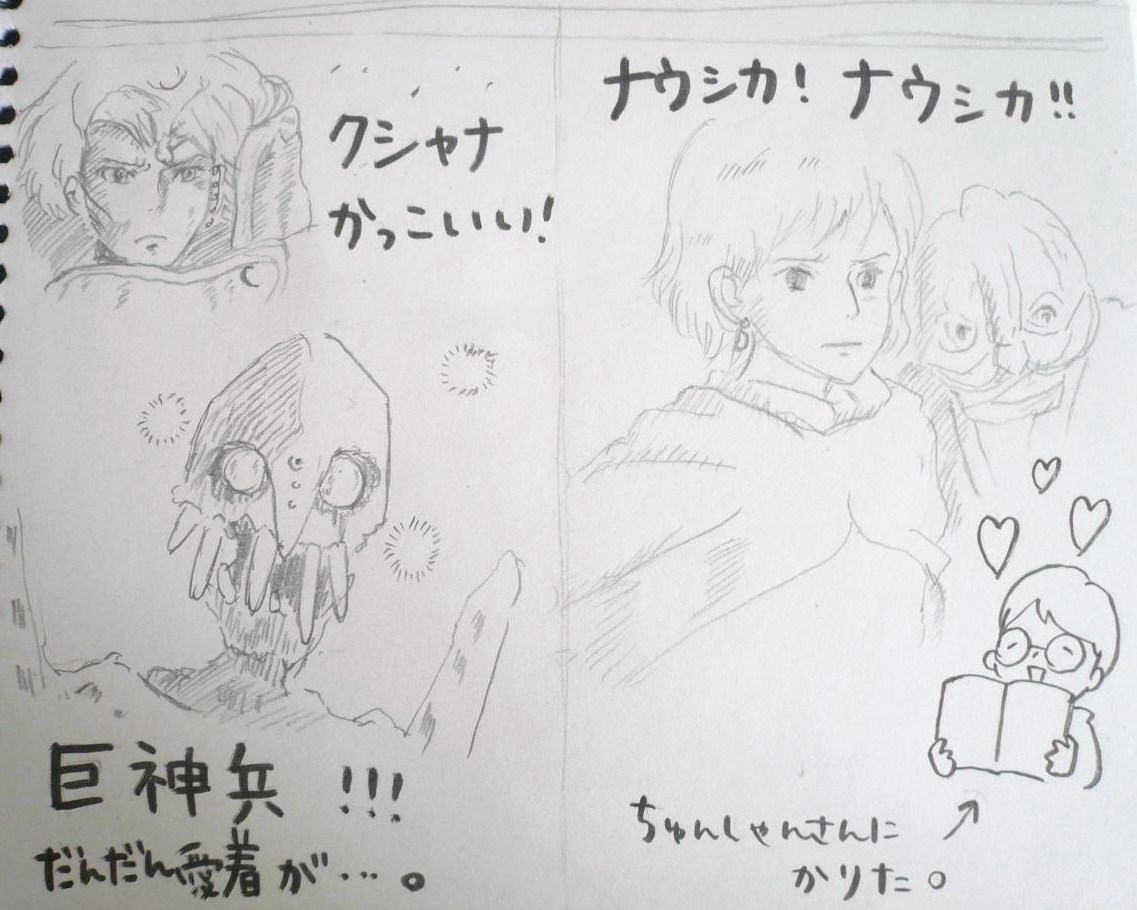 クシャナ
かっこいい!
巨神兵!!!
だんだん愛着が…。
ナウシカ! ナウシカ!!
ちゅんしゃんさんに
かりた。